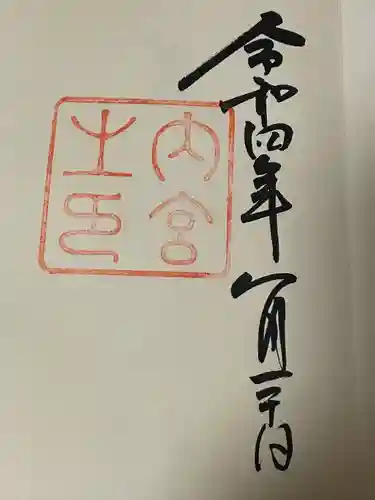 令和四年八月二十日
内宮
之印